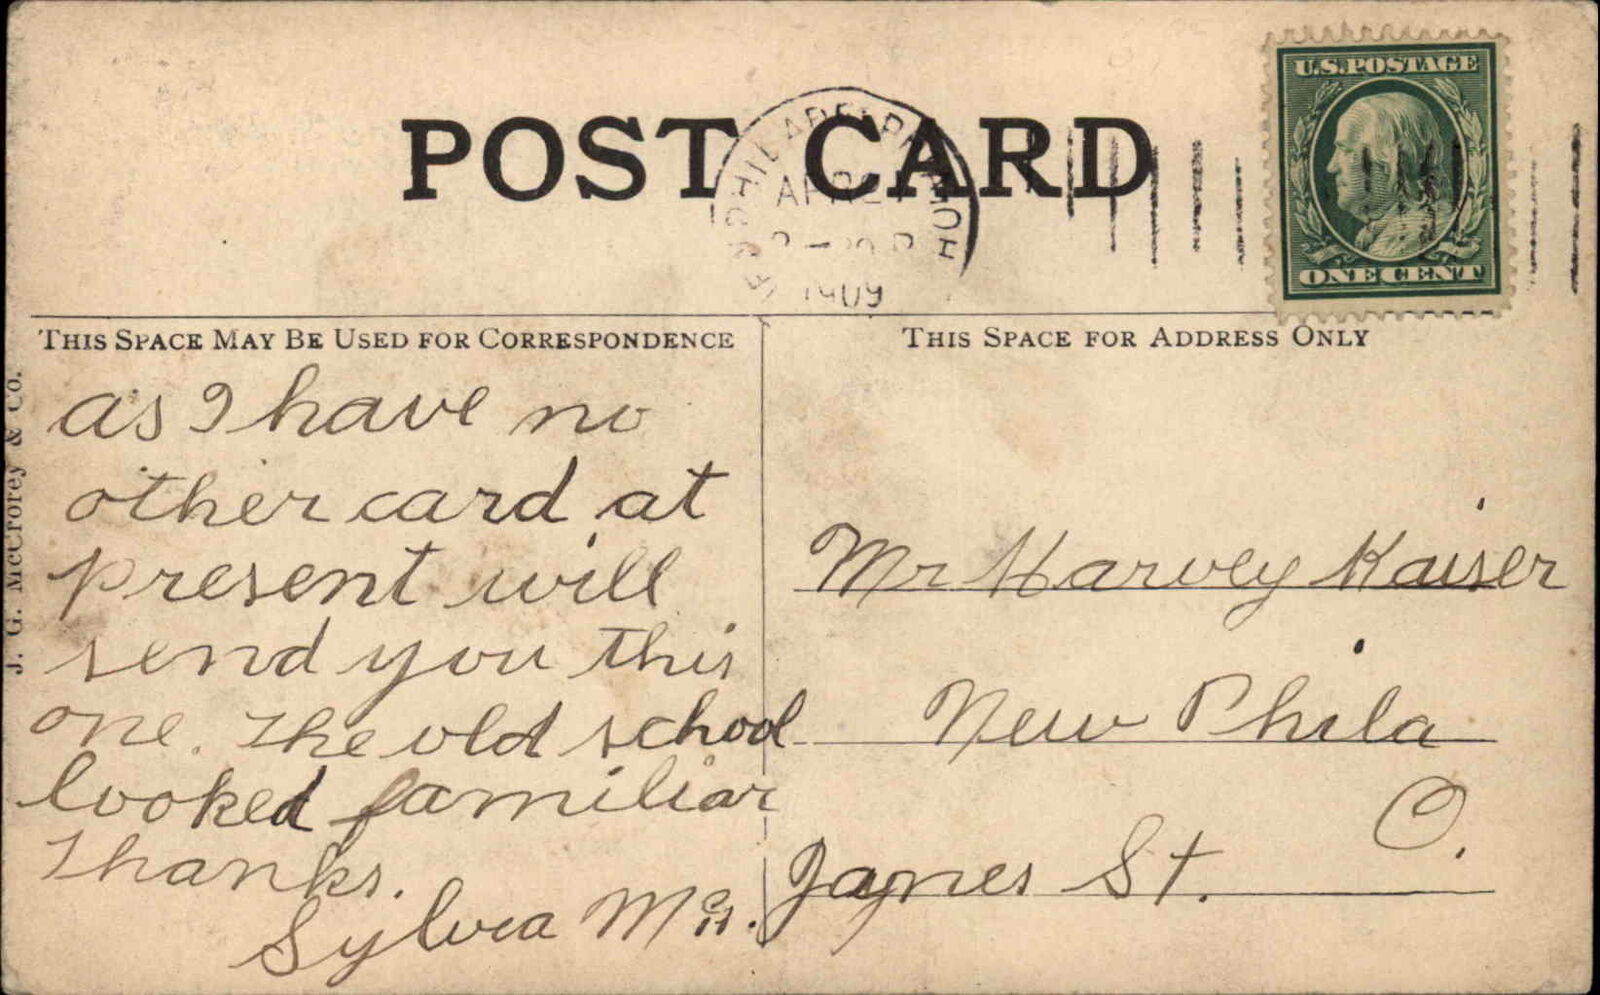 POST CARD
PHILADELPHIA
OHIO
APR 21
1909
U.S.POSTAGE
ONE CENT
THIS SPACE MAY BE USED FOR CORRESPONDENCE
THIS SPACE FOR ADDRESS ONLY
J. G. McCrorey & Co.
as I have no
other card at
present will
send you this
one. The old school
looked familiar
Thanks.
Sylvia Mc
Mr Harvey Kaiser
New Phila
O.
James St.